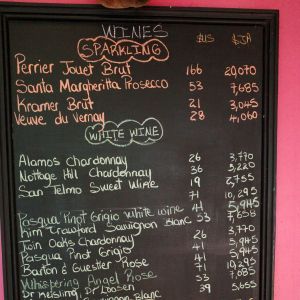 WINES
SPARKLING
$US $JA
Perrier Jouet Brut 166 20,070
Santa Margheritta Prosecco 53 7,685
Kramer Brut 21 3,045
Veuve du Vernay 28 4,060
WHITE WINE
Alamos Chardonnay 26 3,770
Nottage Hill Chardonnay 36 5,220
San Telmo Sweet Wine 19 2,755
71 10,295
Pasqua Pinot Grigio White wine 41 5,945
Kim Crawford Sauvignon Blanc 53 7,658
Twin Oaks Chardonnay 26 3,770
Pasqua Pinot Grigio 41 5,945
Barton & Guestier Rose 41 5,945
Whispering Angel Rose 71 10,295
Dr Loosen 53 7,685
Blanc 39 5,655